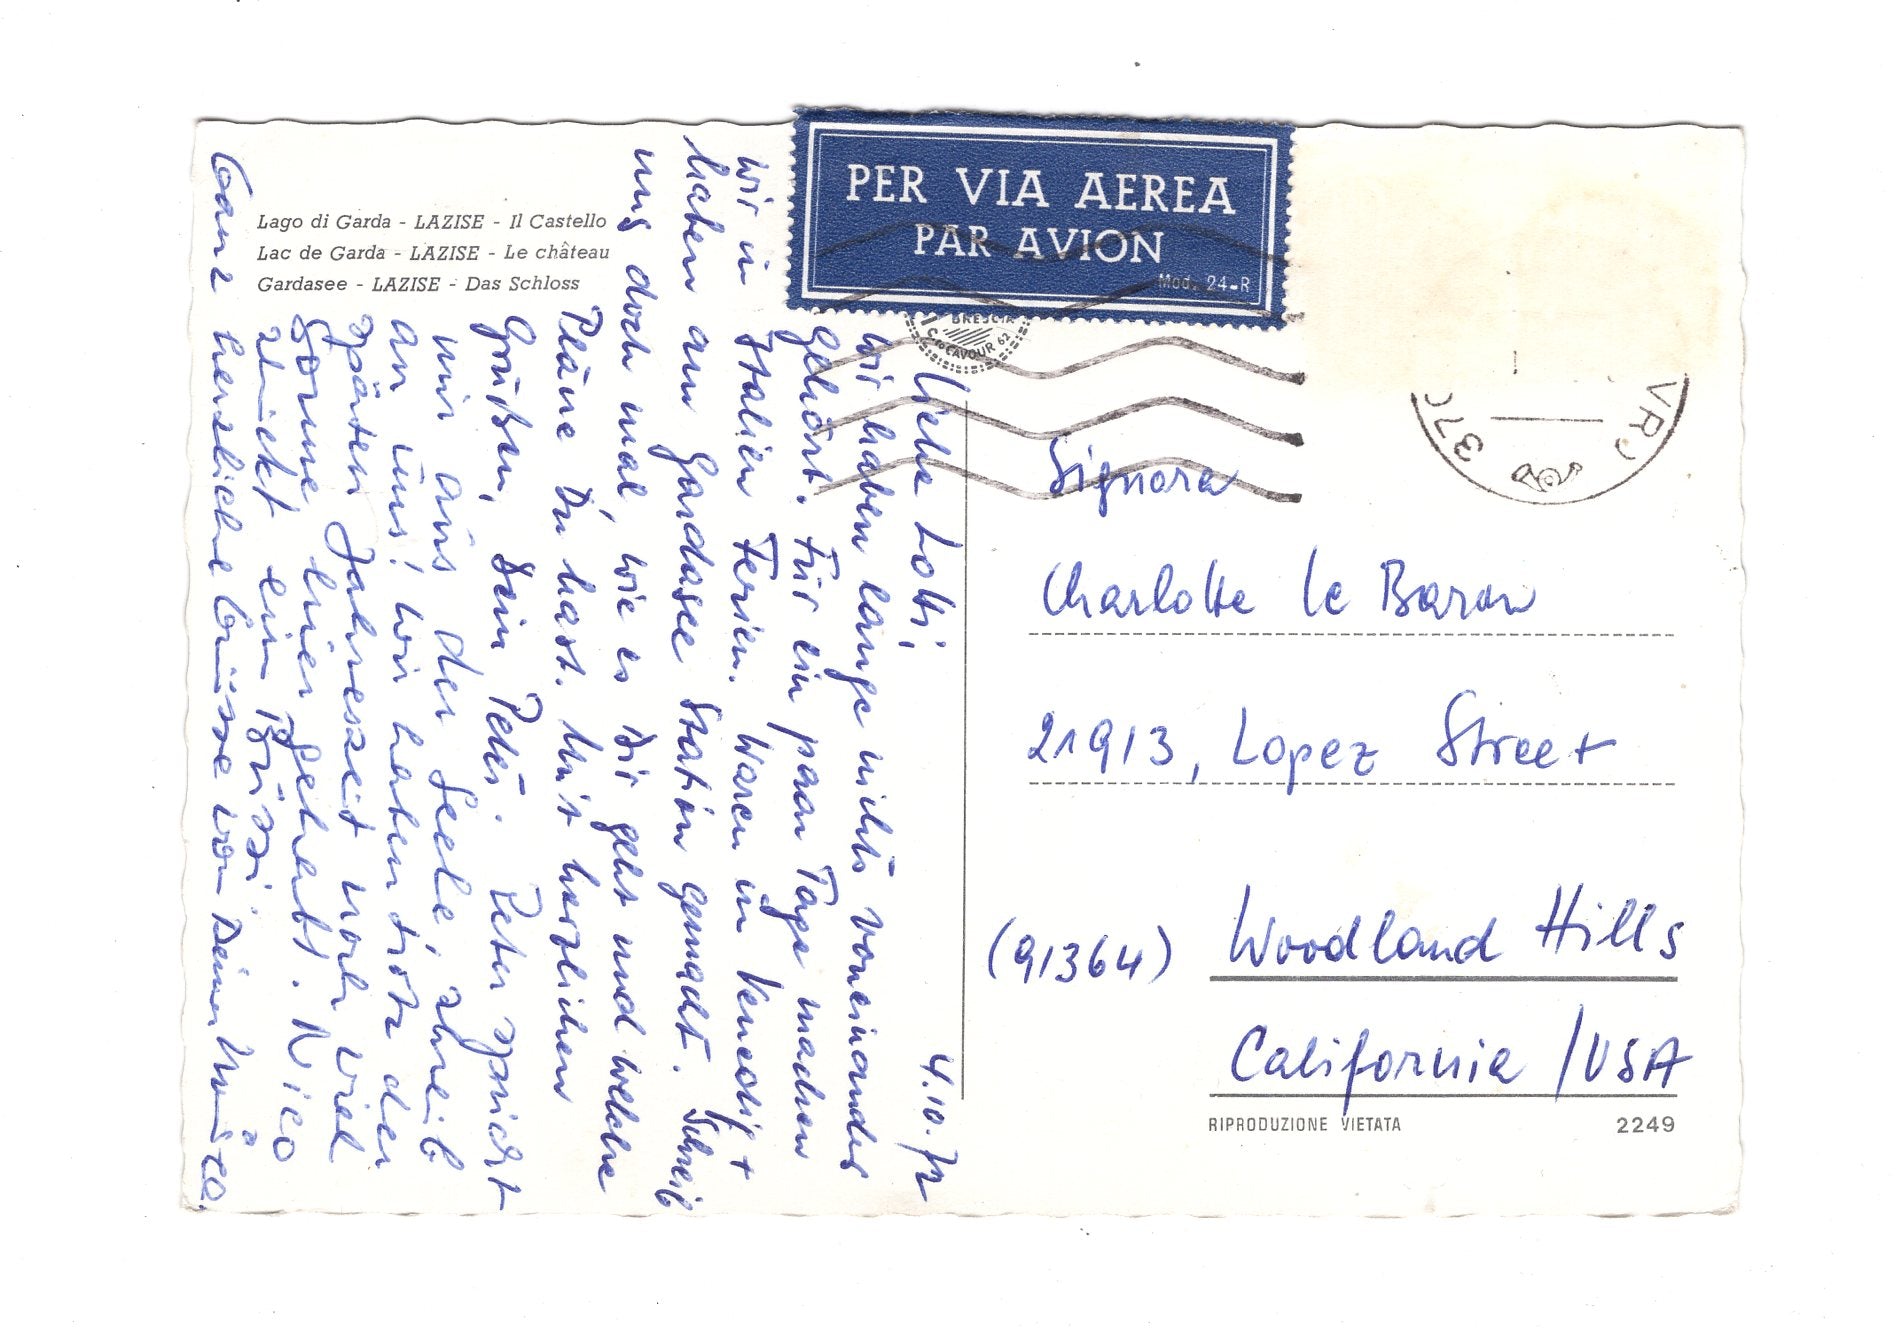 Lago di Garda - LAZISE - Il Castello
Lac de Garda - LAZISE - Le château
Gardasee - LAZISE - Das Schloss
PER VIA AEREA
PAR AVION
Mod. 24-R
BRESCIA
CAVOUR 62
370
4.10.72
Liebe Lotti,
wir haben lange nichts voneinander
gehört. Für ein paar Tage machen
wir in Italien Ferien. Waren in Venedig +
haben am Gardasee Station gemacht. Schreib
uns doch mal, wie es Dir geht und welche
Pläne Du hast. Mit herzlichen
Grüßen, Dein Peter. Peter spricht
mir aus der Seele, schreib
an uns! Wir haben trotz der
späten Jahreszeit noch viel
Sonne hier gehabt. Nico
schickt ein Bussi.
Ganz herzliche Grüsse von Deiner
Signora
Charlotte le Baron
21913, Lopez Street
(91364) Woodland Hills
California /USA
RIPRODUZIONE VIETATA
2249